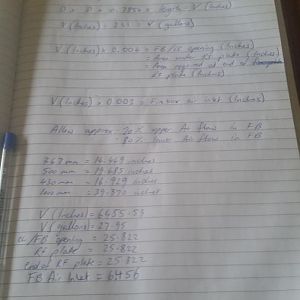 D x D x 0.7854 x length = V (inches)
V (inches) ÷ 231 = V (gallons)
V (inches) x 0.004 = FB/CC opening (inches)
= Area under RF plate (inches)
= Area required at end of
RF plate (inches)
V (inches) x 0.003 = Firebox air inlet (inches)
Allow approx. 20% upper Air flow in FB
80% lower Air flow in FB
367mm = 14.449 inches
500mm = 19.685 inches
430mm = 16.929 inches
= 39.370 inches
V (inches) = 6455.54
V (gallons) = 27.95
CC/FB opening = 25.822
RF plate = 25.822
end of RF plate = 25.822
FB Air inlet =